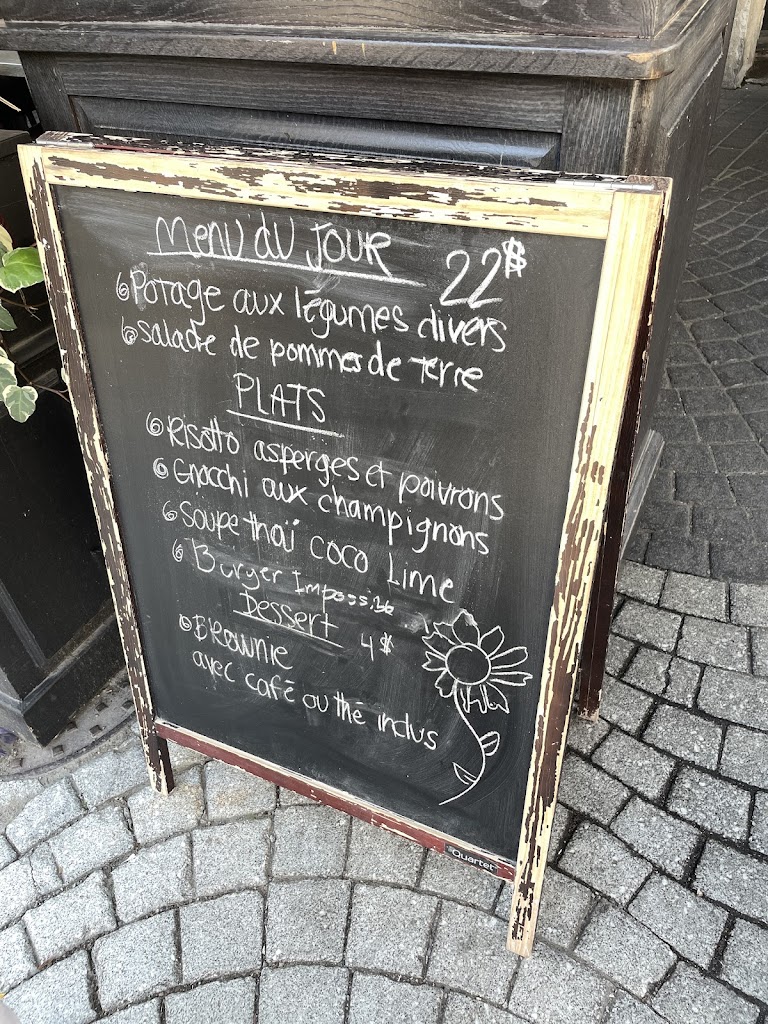 Menu du JOUR 22$
Potage aux légumes divers
Salade de pommes de Terre
PLATS
Risotto asperges et poivrons
Gnocchi aux champignons
Soupe thaï coco Lime
Burger Impossible
Dessert 4$
BROWNIE
avec café ou thé inclus
Quartet